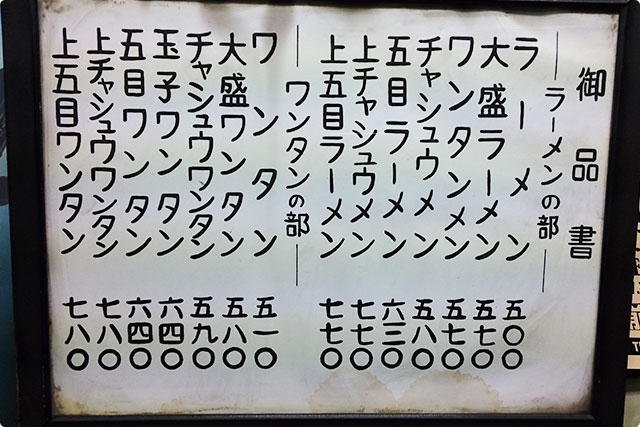 御品書
―ラーメンの部―
ラーメン 五〇〇
大盛ラーメン 五七〇
ワンタンメン 五七〇
チャシュウメン 五八〇
五目ラーメン 六三〇
上チャシュウメン 七七〇
上五目ラーメン 七七〇
―ワンタンの部―
ワンタン 五一〇
大盛ワンタン 五八〇
チャシュウワンタン 五九〇
玉子ワンタン 六四〇
五目ワンタン 六四〇
上チャシュウワンタン 七八〇
上五目ワンタン 七八〇